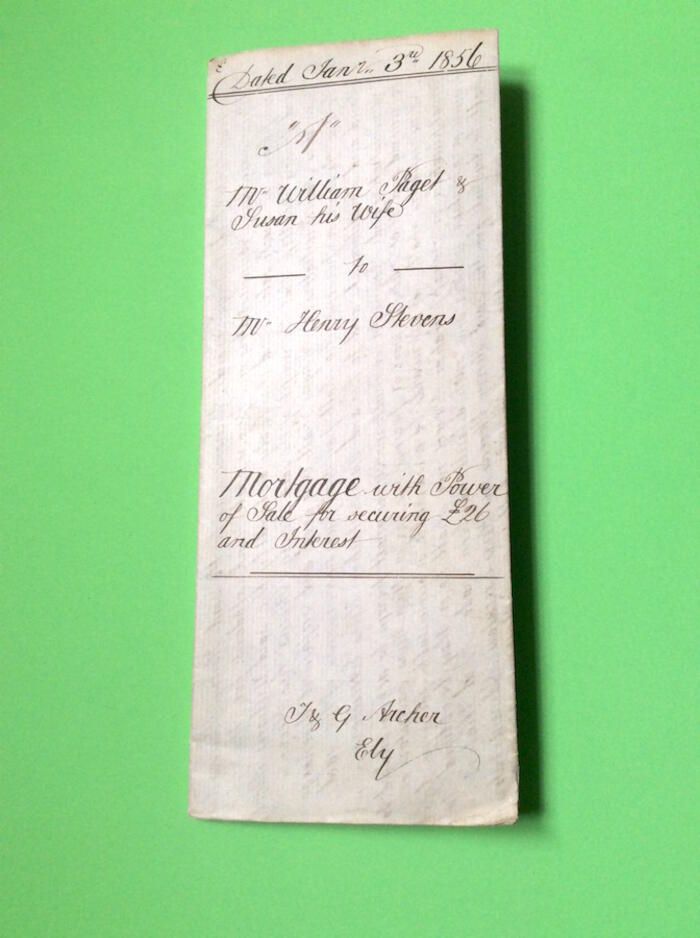 Dated Jany. 3rd 1856
Mr William Paget &
Susan his Wife
to
Mr Henry Stevens
Mortgage with Power
of Sale for securing £26
and Interest
T & G Archer
Ely